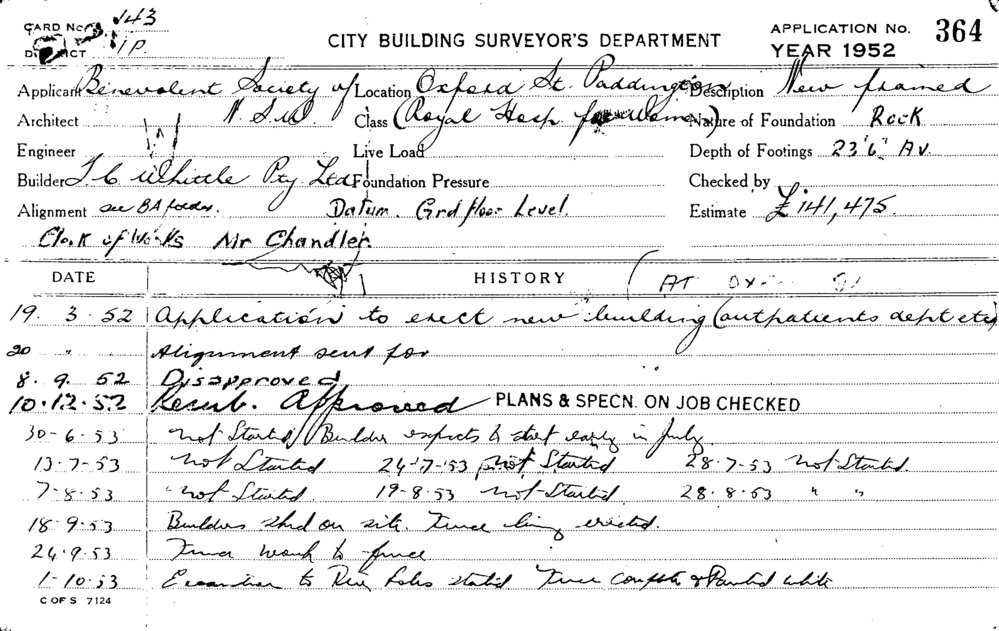 CARD No. 143
DISTRICT 1P.
CITY BUILDING SURVEYOR'S DEPARTMENT
APPLICATION No. 364
YEAR 1952
Applicant Benevolent Society of Location Oxford St. Paddington Description New framed
Architect N.S.W. Class (Royal Hosp for Women) Nature of Foundation Rock
Engineer Live Load Depth of Footings 23'6" Av.
Builder T. C. Whittle Pty Ltd Foundation Pressure Checked by
Alignment see BA folder. Datum. Grd floor Level. Estimate £141,475.
Clerk of Works Mr Chandler
DATE HISTORY AT
19. 3. 52 Application to erect new building (outpatients dept etc)
20 " " Alignment sent for
8. 9. 52 Disapproved
10.12.52 Resub. Approved PLANS & SPECN. ON JOB CHECKED
30-6-53 Not Started Builder expects to start early in July
13-7-53 Not Started 24-7-53 Not Started 28-7-53 Not Started.
7-8-53 Not Started. 19-8-53 Not Started 28-8-53 " "
18.9.53 Builders shed on site. Fence being erected.
24.9.53 work to fence
1-10-53 Excavation to Pier holes started Fence complete & Painted white
C OF S 7124